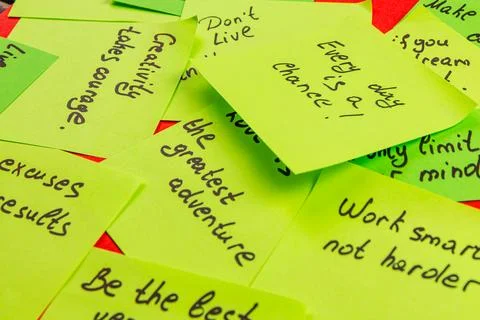 Don't
Live
Make a
if you
dream
Live
Creativity
takes courage.
Every day
is a
chance!
only limit
mind
Love is
the
greatest
adventure
excuses
results
Work smart
not harder
Be the best